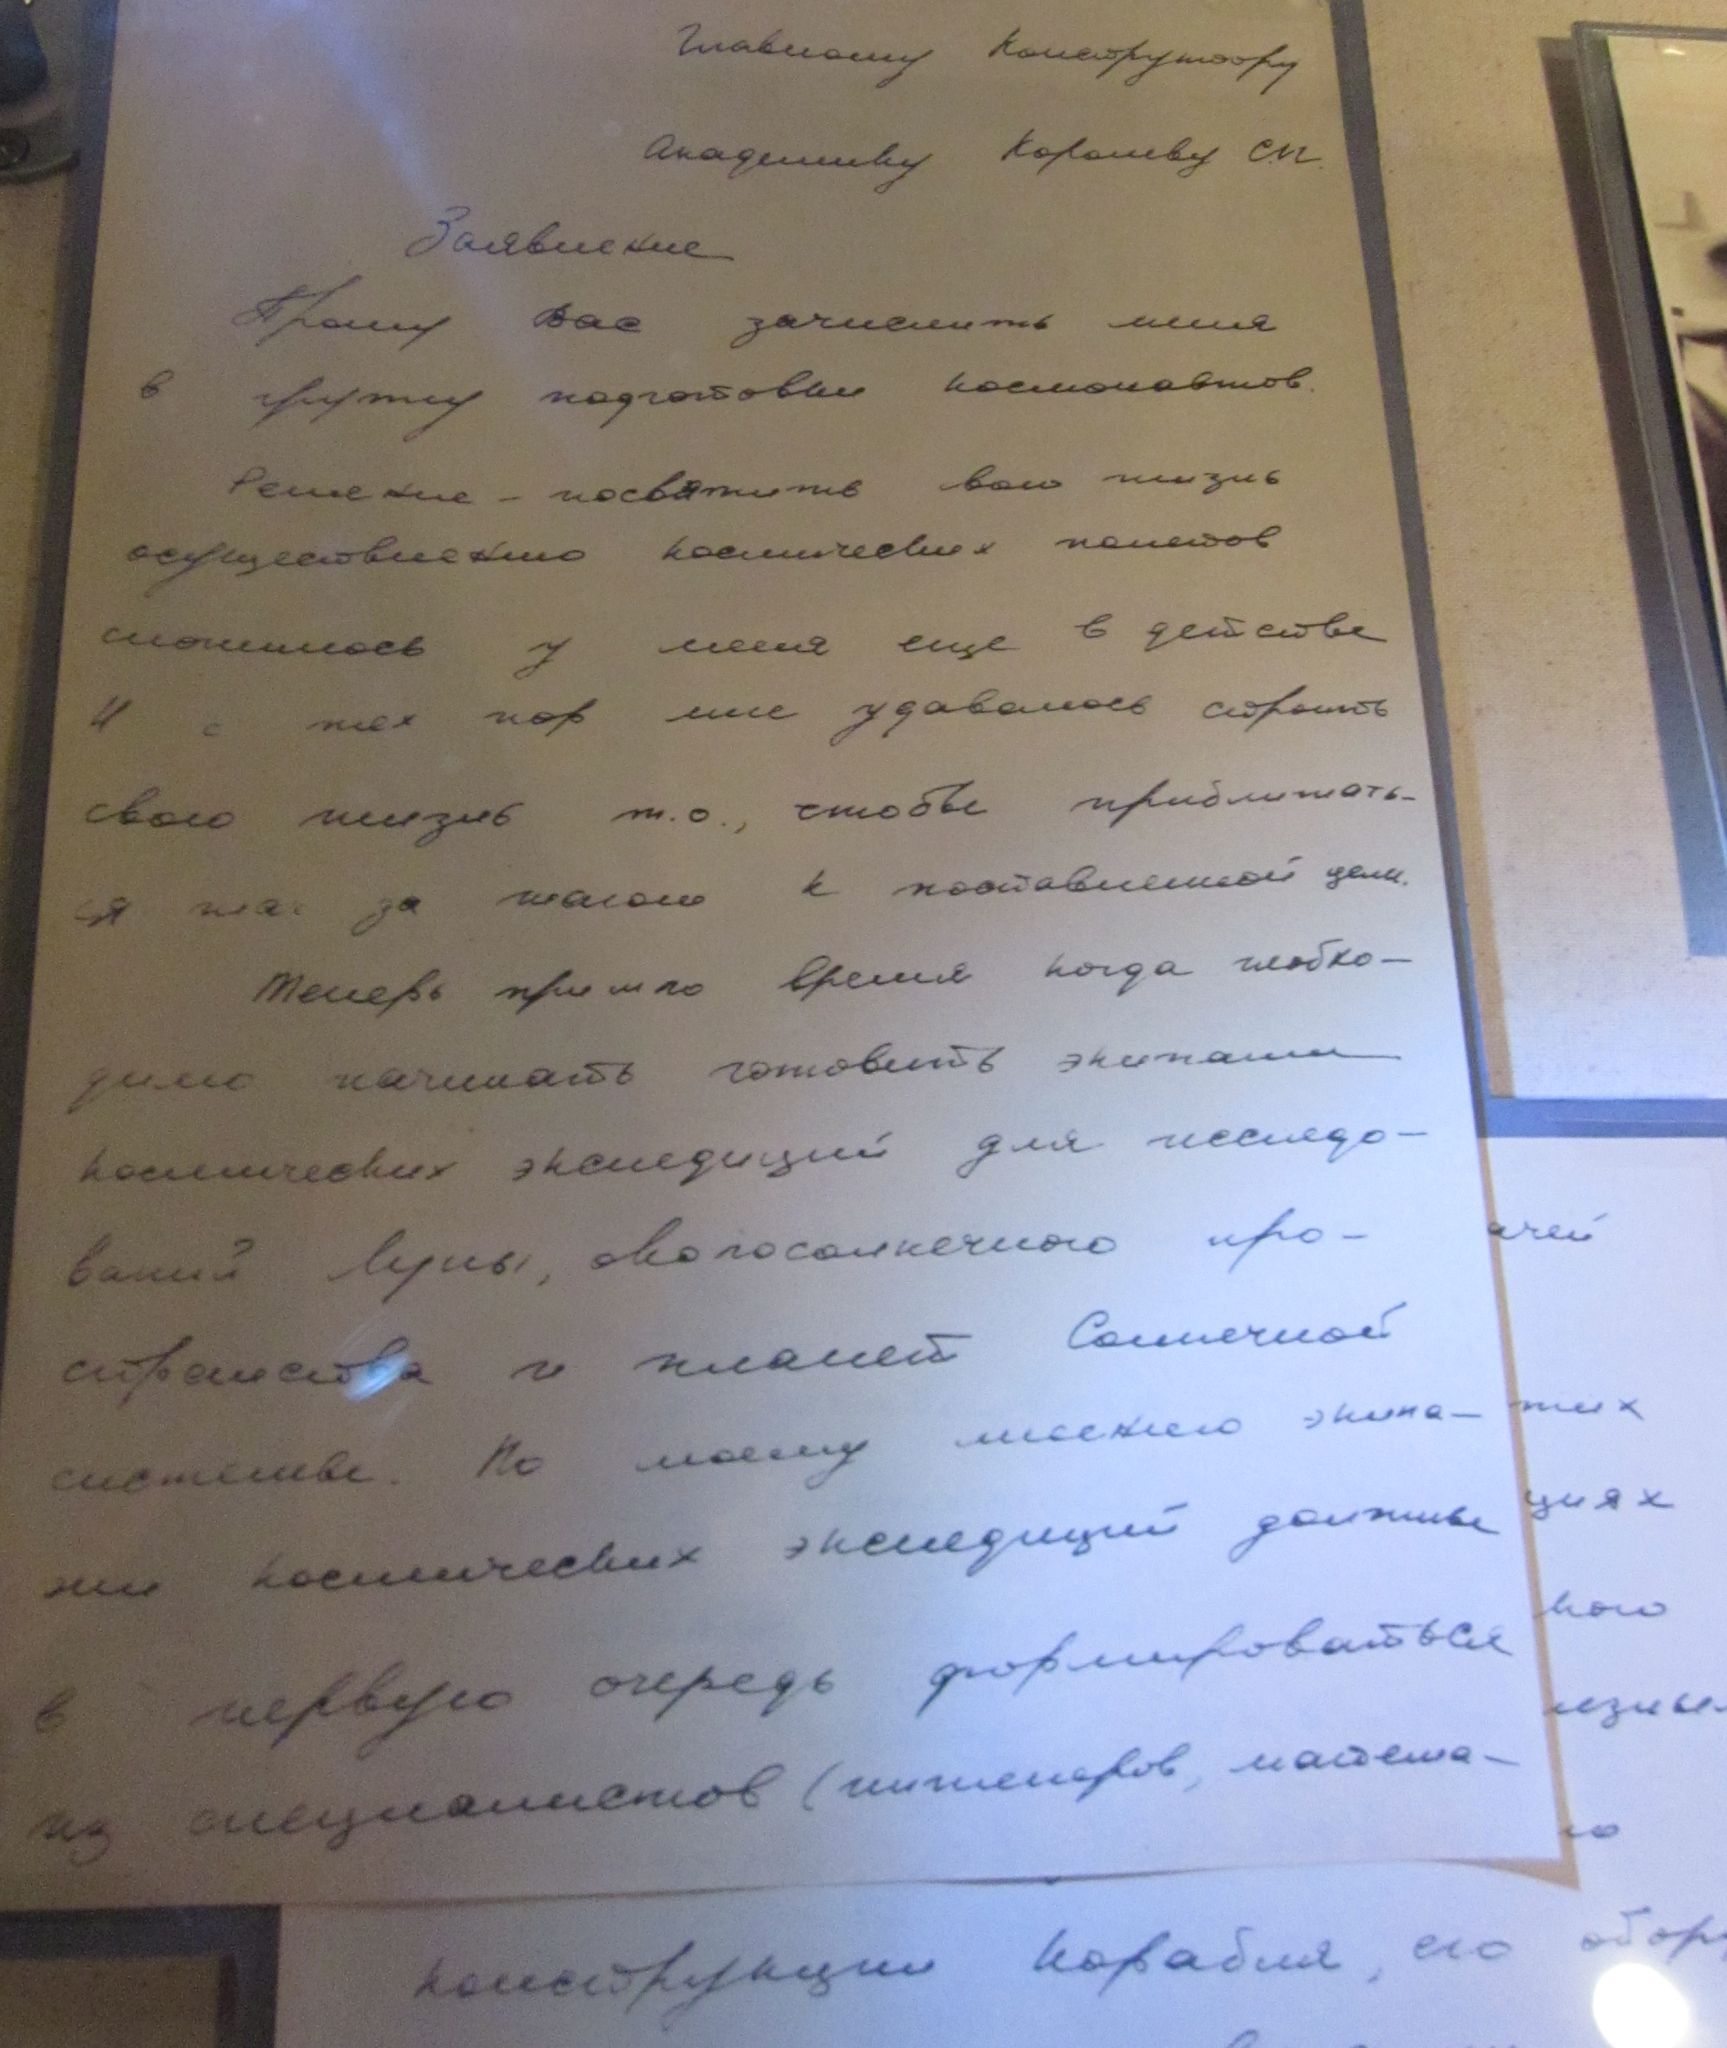 Главному Конструктору
Академику Королеву С.П.
Заявление
Прошу Вас зачислить меня
в группу подготовки космонавтов.
Решение – посвятить свою жизнь
осуществлению космических полетов
сложилось у меня еще в детстве
И с тех пор мне удавалось строить
свою жизнь т.о., чтобы приближать-
ся шаг за шагом к поставленной цели.
Теперь пришло время когда необхо-
димо начинать готовить экипажи
космических экспедиций для исследо-
ваний Луны, околосолнечного про-
странства и планет Солнечной
системы. По моему мнению экипа-
жи космических экспедиций должны
в первую очередь формироваться
из специалистов (инженеров, матема-
ачей
тих
циях
кого
ло
конструкции корабля, его обору